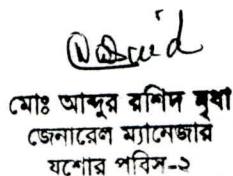 মোঃ আব্দুর রশিদ মৃধা
জেনারেল ম্যানেজার
যশোর পবিস-২